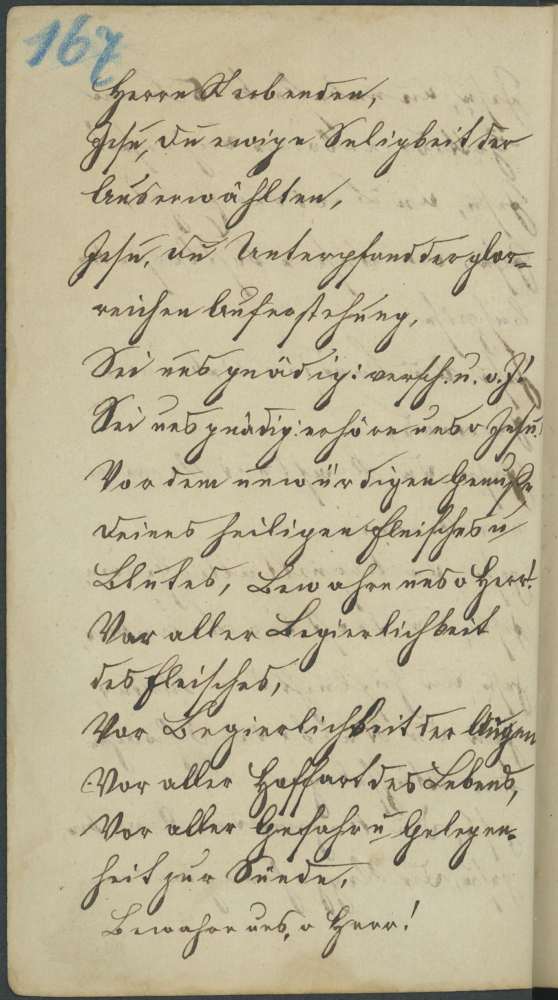 167
Herrn Sterbenden,
Jesu, du ewige Seligkeit der
Auserwählten,
Jesu, du Unterpfand der glor=
reichen Auferstehung,
Sei uns gnädig: versch. u. o. J!
Sei uns gnädig: erhöre uns o Jesu!
Vor dem unwürdigen Genuße
deines heiligen Fleisches u
Blutes, Bewahre uns o Herr!
Vor aller Begierlichkeit
des Fleisches,
Vor Begierlichkeit der Augen
Vor aller Hoffart des Lebens,
Vor aller Gefahr u Gelegen=
heit zur Sünde,
Bewahre uns, o Herr!